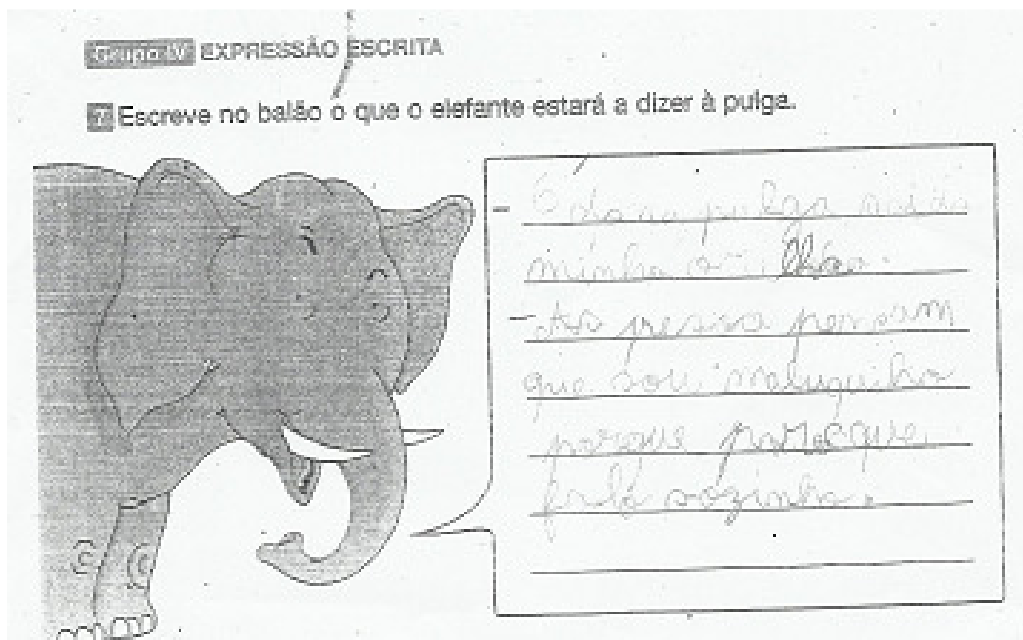 Grupo IV EXPRESSÃO ESCRITA
7 Escreve no balão o que o elefante estará a dizer à pulga.
- Ó dona pulga sai da
minha orelha.
- As pessoa pensam
que sou maluquinho
porque parece que
falo sozinho.